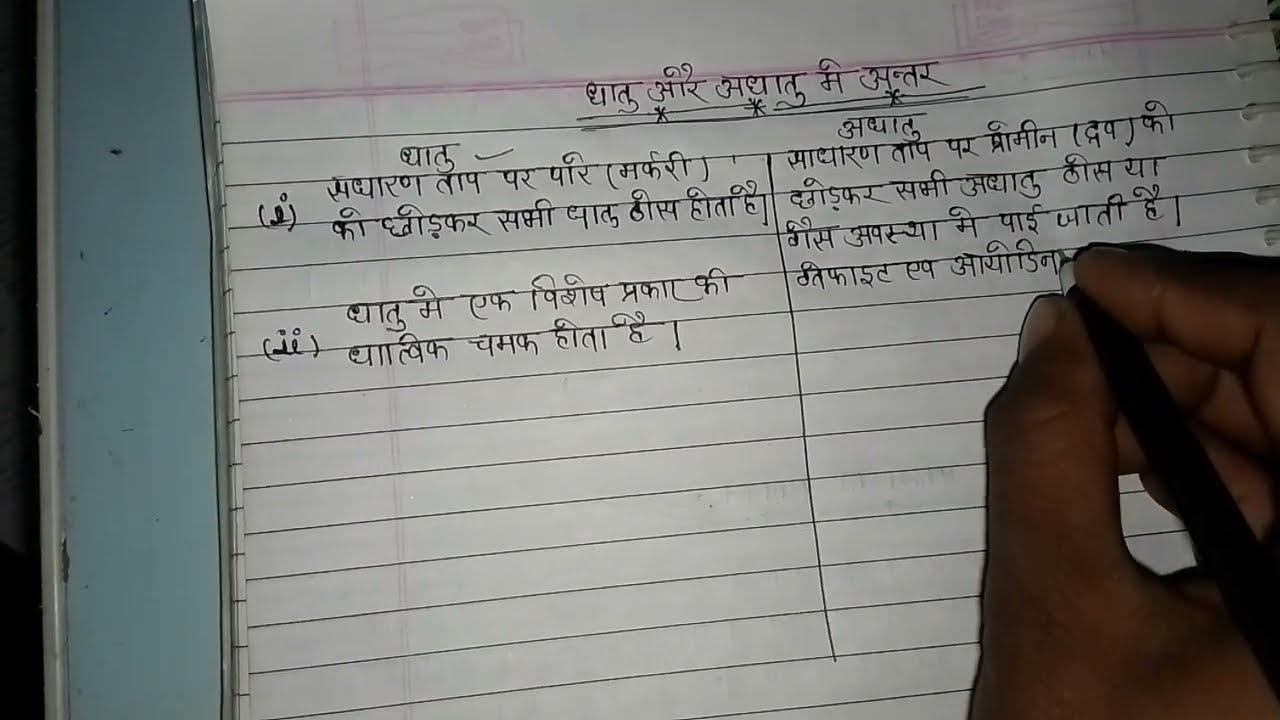 धातु और अधातु मे अन्तर
धातु
(i) साधारण ताप पर पारे (मर्करी)
को छोड़कर सभी धातु ठोस होता है।
(ii) धातु मे एक विशेष प्रकार की
धात्विक चमक होता है।
अधातु
साधारण ताप पर ब्रोमीन (द्रव) को
छोड़कर सभी अधातु ठोस या
गैस अवस्था मे पाई जाती है।
ग्रेफाइट एव आयोडिन